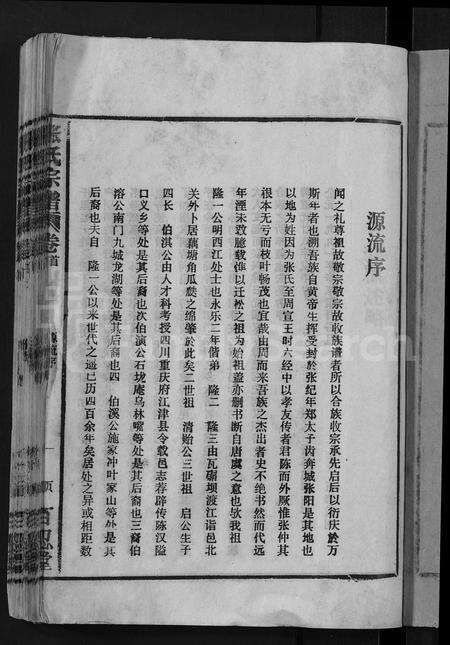 源流序
闻之礼尊祖故敬宗敬宗故收族谱者所以合族收宗承先启后以衍庆於万
斯年者也溯吾族自黄帝生挥受封於张纪年郑太子齿奔城张阳是其地也
以地为姓因为张氏至周宣王时六经中以孝友传者君陈而外厥惟张仲其
很本无亏而枝叶畅茂也宜哉由周而来吾族之杰出者史不绝书然而代远
年湮未敢臆载惟以迁松之祖为始祖盖亦删书断自唐虞之意也欤我祖
隆一公明西江处士也永乐二年偕弟 隆二 隆三由瓦砌坝渡江诣邑北
关外卜居藕塘角瓜瓞之绵肇於此矣二世祖 清贻公三世祖 启公生子
四长 伯淇公由人才科考授四川重庆府江津县令载邑志荐辟传陈汉隘
口义乡等处是其后裔也次伯演公石垅庵乌林嘴等处是其后裔也三房伯
溶公南门九城龙湖等处是其后裔也四 伯溪公施家冲叶家山等处是其
后裔也夫自 隆一公以来世代之递已历四百余年矣居处之异或相距数
张氏宗谱
卷首
源流序
一
百忍堂